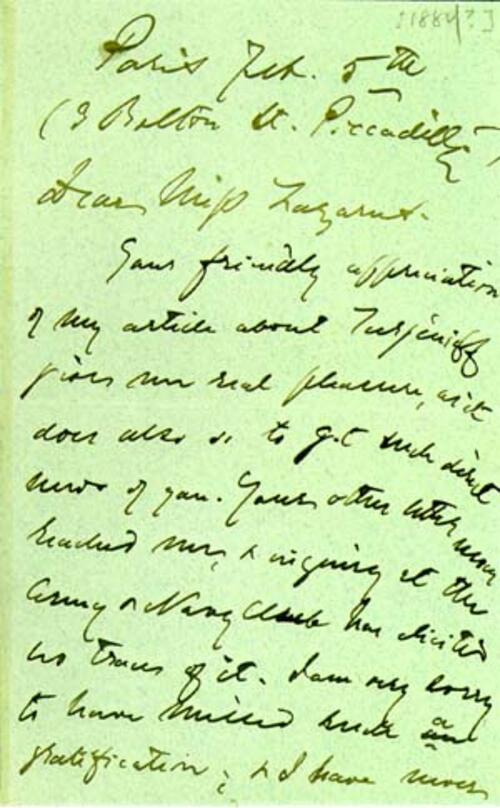 [1884?]
Paris Feb. 5th
(3 Bolton St. Piccadilly)
Dear Miss Lazarus.
Your friendly appreciation
of my article about Turgénieff
gives me real pleasure, as it
does also so to get such direct
news of you. Your other letter never
reached me, & inquiry at the
Army & Navy Club has elicited
no trace of it. I am very sorry
to have missed such a
gratification; & I have never